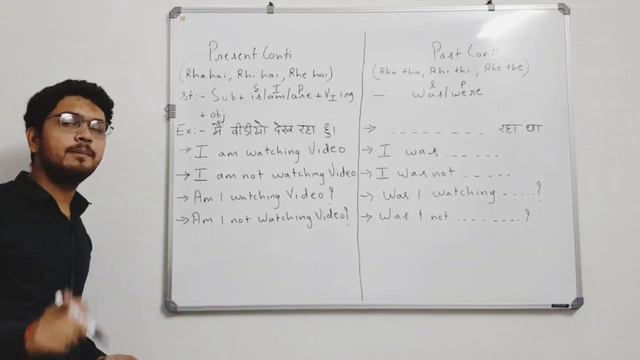 Present Conti
(Rha hai, Rhi hai, Rhe hai)
S I P
st:- Sub + is/am/are + V1 ing
+ obj
Ex:- मैं वीडियो देख रहा हूँ।
→ I am watching Video
→ I am not watching Video
→ Am I watching Video?
→ Am I not watching Video?
Past Conti
(Rha tha, Rhi thi, Rhe the)
S P
- was/were
→ _ _ _ _ _ _ _ _ रहा था
→ I was _ _ _ _ _
→ I was not _ _ _ _ _
→ Was I watching ....?
→ Was I not _ _ _ _ _ _ ?